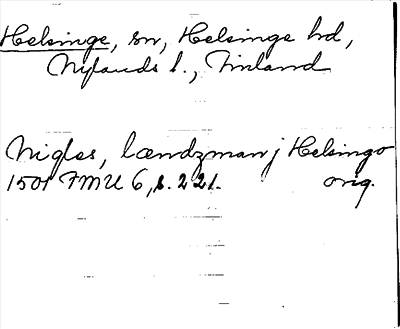 Helsinge, sn, Helsinge hd,
Nylands l., Finland
Nigles, lændzman j Helsingo
1501 FMU 6, s. 221. orig.